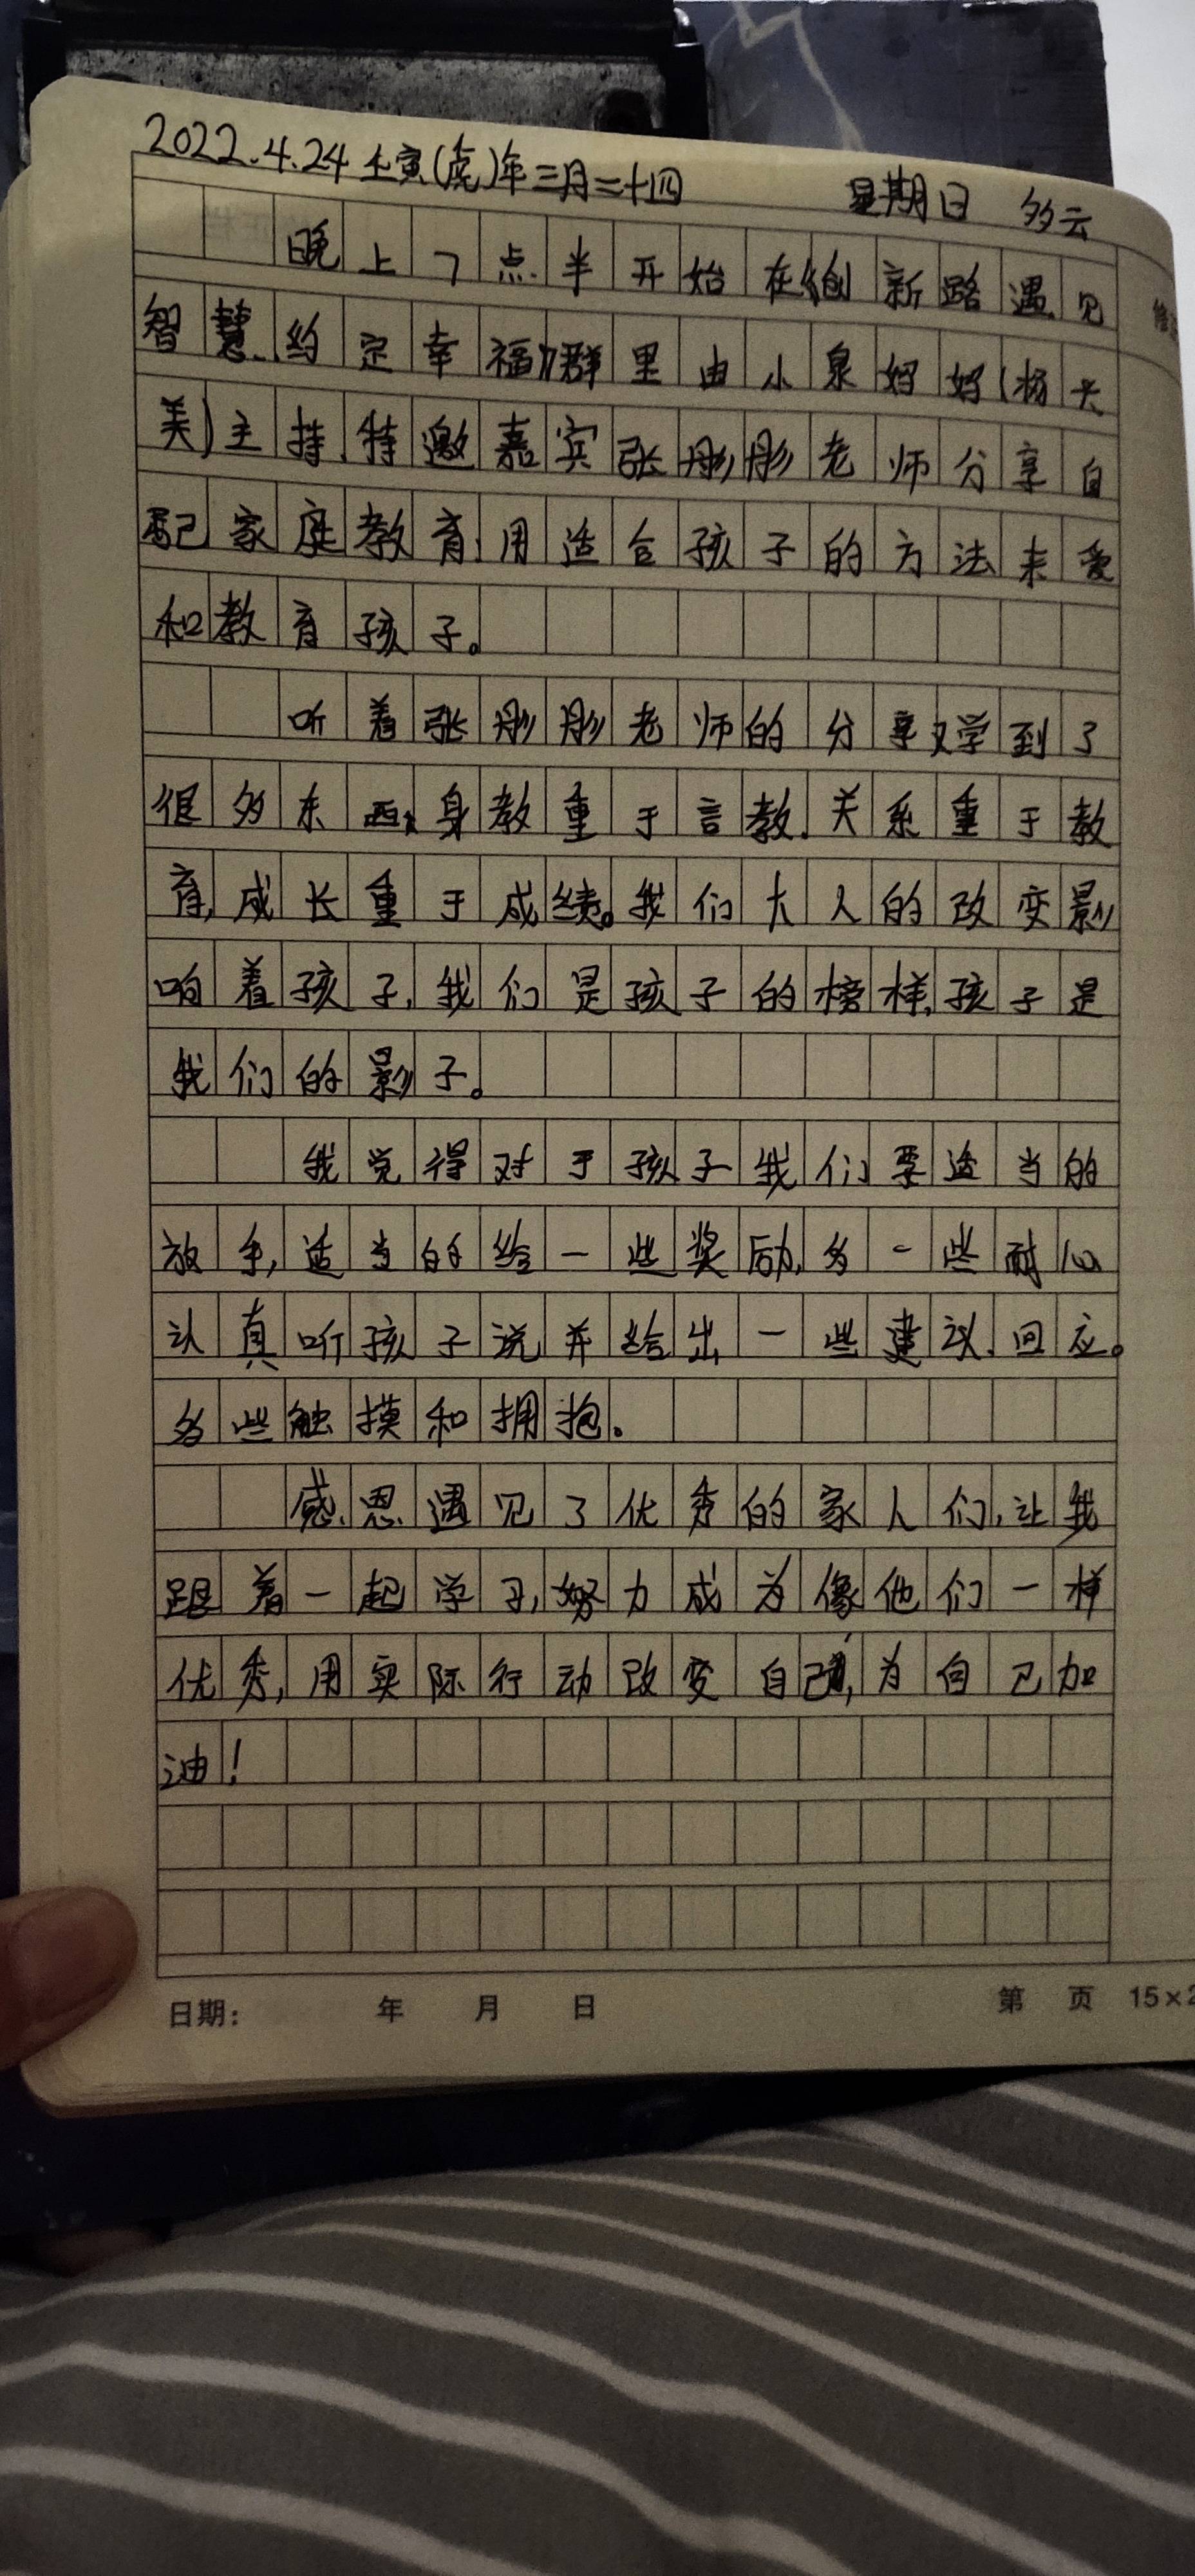 2022.4.24 壬寅(虎)年三月二十四 星期日 多云
晚上7点半开始在《创新路遇见
智慧、约定幸福》群里由小泉妈妈(杨大
美)主持,特邀嘉宾张彤彤老师分享自
己家庭教育,用适合孩子的方法来爱
和教育孩子。
听着张彤彤老师的分享又学到了
很多东西:身教重于言教.关系重于教
育,成长重于成绩。我们大人的改变影
响着孩子,我们是孩子的榜样,孩子是
我们的影子。
我觉得对于孩子我们要适当的
放手,适当的给一些奖励,多一些耐心
认真听孩子说并给出一些建议、回应。
多些触摸和拥抱。
感恩遇见了优秀的家人们,让我
跟着一起学习,努力成为像他们一样
优秀,用实际行动改变自己,为自己加
油!
日期: 年 月 日 第 页 15×2